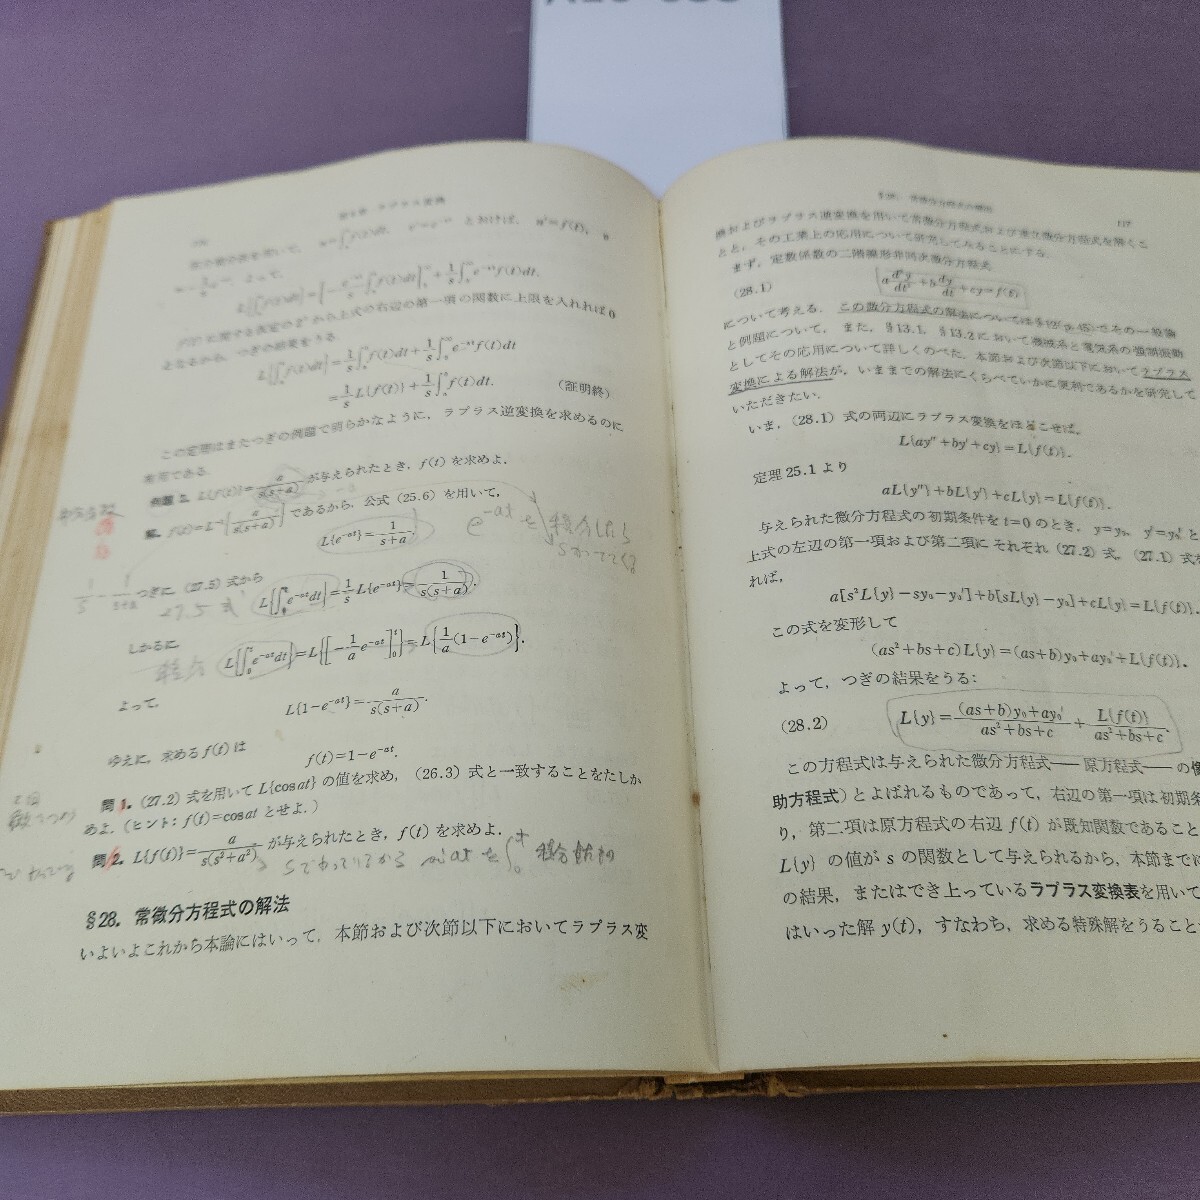 第5章 ラプラス変換
とおけば,
L{∫f(t)dt}=[-e⁻ˢᵗ/s ∫f(t)dt]+1/s∫e⁻ˢᵗf(t)dt.
上式の右辺の第一項の関数に上限を入れれば0
となるから,つぎの結果をうる.
L{∫f(t)dt}=1/s∫f(t)dt+1/s∫e⁻ˢᵗf(t)dt
=1/s L{f(t)}+1/s∫f(t)dt. (証明終)
この定理はまたつぎの例題で明らかなように,ラプラス逆変換を求めるのに
有用である.
例題 2. L{f(t)}=a/s(s+a) が与えられたとき,f(t) を求めよ.
解. f(t)=L⁻¹{a/s(s+a)} であるから,公式 (25.6) を用いて,
L{e⁻ᵃᵗ}=1/s+a.
e⁻ᵃᵗ を 積分したら
1/s - 1/s+a
つぎに (27.5)式から
27.5 式
L{∫₀ᵗe⁻ᵃᵗdt}=1/s L{e⁻ᵃᵗ}=1/s(s+a).
しかるに
積分
L{∫₀ᵗe⁻ᵃᵗdt}=L{[-1/a e⁻ᵃᵗ]₀ᵗ}=L{1/a(1-e⁻ᵃᵗ)}.
よって,
L{1-e⁻ᵃᵗ}=a/s(s+a).
ゆえに,求める f(t) は
f(t)=1-e⁻ᵃᵗ.
問 1. (27.2) 式を用いて L{cos at} の値を求め,(26.3) 式と一致することをたしか
めよ.(ヒント: f(t)=cos at とせよ.)
問 2. L{f(t)}=a/s(s²+a²) が与えられたとき,f(t) を求めよ.
sでわっているから sin at を ∫₀ᵗ 積分
§28. 常微分方程式の解法
いよいよこれから本論にはいって,本節および次節以下においてラプラス変
117
換およびラプラス逆変換を用いて常微分方程式および連立微分方程式を解くこ
とと,その工業上の応用について研究してみることにする.
まず,定数係数の二階線形非同次微分方程式
(28.1) a d²y/dt²+b dy/dt+cy=f(t)
について考える.この微分方程式の解法については§12(p.45)でその一般論
と例題について,また,§13.1,§13.2 において機械系と電気系の強制振動
としてその応用について詳しくのべた.本節および次節以下においてラプラス
変換による解法が,いままでの解法にくらべていかに便利であるかを研究して
いただきたい.
いま,(28.1) 式の両辺にラプラス変換をほどこせば,
L{ay″+by′+cy}=L{f(t)}.
定理 25.1 より
aL{y″}+bL{y′}+cL{y}=L{f(t)}.
与えられた微分方程式の初期条件を t=0 のとき,y=y₀,y′=y₀′ と
上式の左辺の第一項および第二項にそれぞれ (27.2) 式,(27.1) 式を
れば,
a[s²L{y}-sy₀-y₀′]+b[sL{y}-y₀]+cL{y}=L{f(t)}.
この式を変形して
(as²+bs+c)L{y}=(as+b)y₀+ay₀′+L{f(t)}.
よって,つぎの結果をうる:
(28.2) L{y}=(as+b)y₀+ay₀′/as²+bs+c + L{f(t)}/as²+bs+c.
この方程式は与えられた微分方程式——原方程式——の像
助方程式)とよばれるものであって,右辺の第一項は初期条
り,第二項は原方程式の右辺 f(t) が既知関数であること
L{y} の値が s の関数として与えられるから,本節までに
の結果,またはでき上っているラプラス変換表を用いて
はいった解 y(t),すなわち,求める特殊解をうること